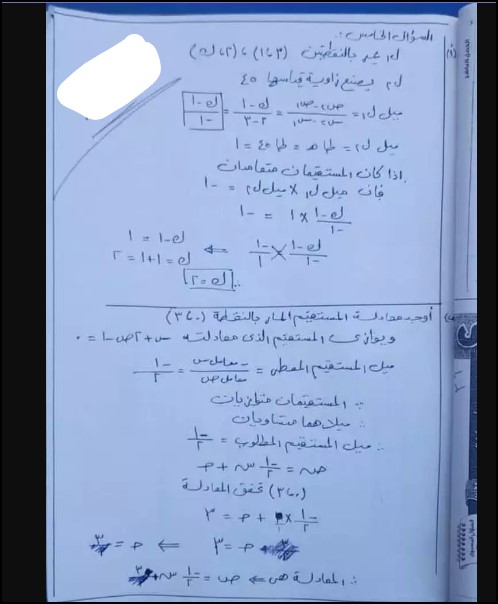 السؤال الخامس:
(أ) ل١ يمر بالنقطتين (٣،١)، (٢،ك)
ل٢ يصنع زاوية قياسها ٤٥
ميل ل١ = ص٢-ص١/س٢-س١ = ك-١/٢-٣ = ك-١/-١
ميل ل٢ = طا هـ = طا ٤٥ = ١
إذا كان المستقيمان متعامدان
فإن ميل ل١ × ميل ل٢ = -١
ك-١/-١ × ١ = -١
ك-١/-١ × -١/١ ⇐ ك-١ = ١
ك = ١+١ = ٢
∴ ك = ٢
أوجد معادلة المستقيم المار بالنقطة (٣،٠)
ويوازى المستقيم الذى معادلته س + ٢ص - ١ = ٠
ميل المستقيم المعطى = -معامل س/معامل ص = -١/٢
∵ المستقيمان متوازيان
∴ ميلاهما متساويان
∴ ميل المستقيم المطلوب = -١/٢
ص = -١/٢ س + جـ
(٣،٠) تحقق المعادلة
-١/٢ × ٠ + جـ = ٣
جـ = ٣ ⇐ جـ = ٣
∴ المعادلة هى ⇐ ص = -١/٢ س + ٣